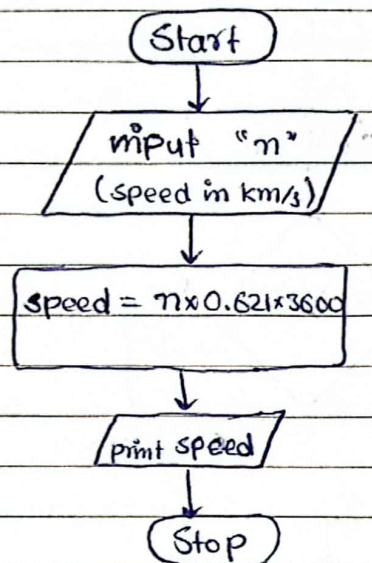 Start
input "n"
(speed in km/s)
speed = n×0.621×3600
print speed
Stop